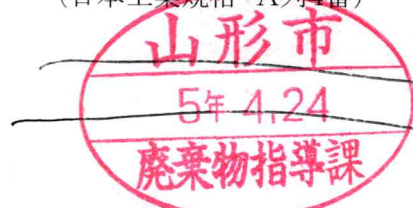 (日本工業規格 A列4番)
山形市
5年 4.24
廃棄物指導課